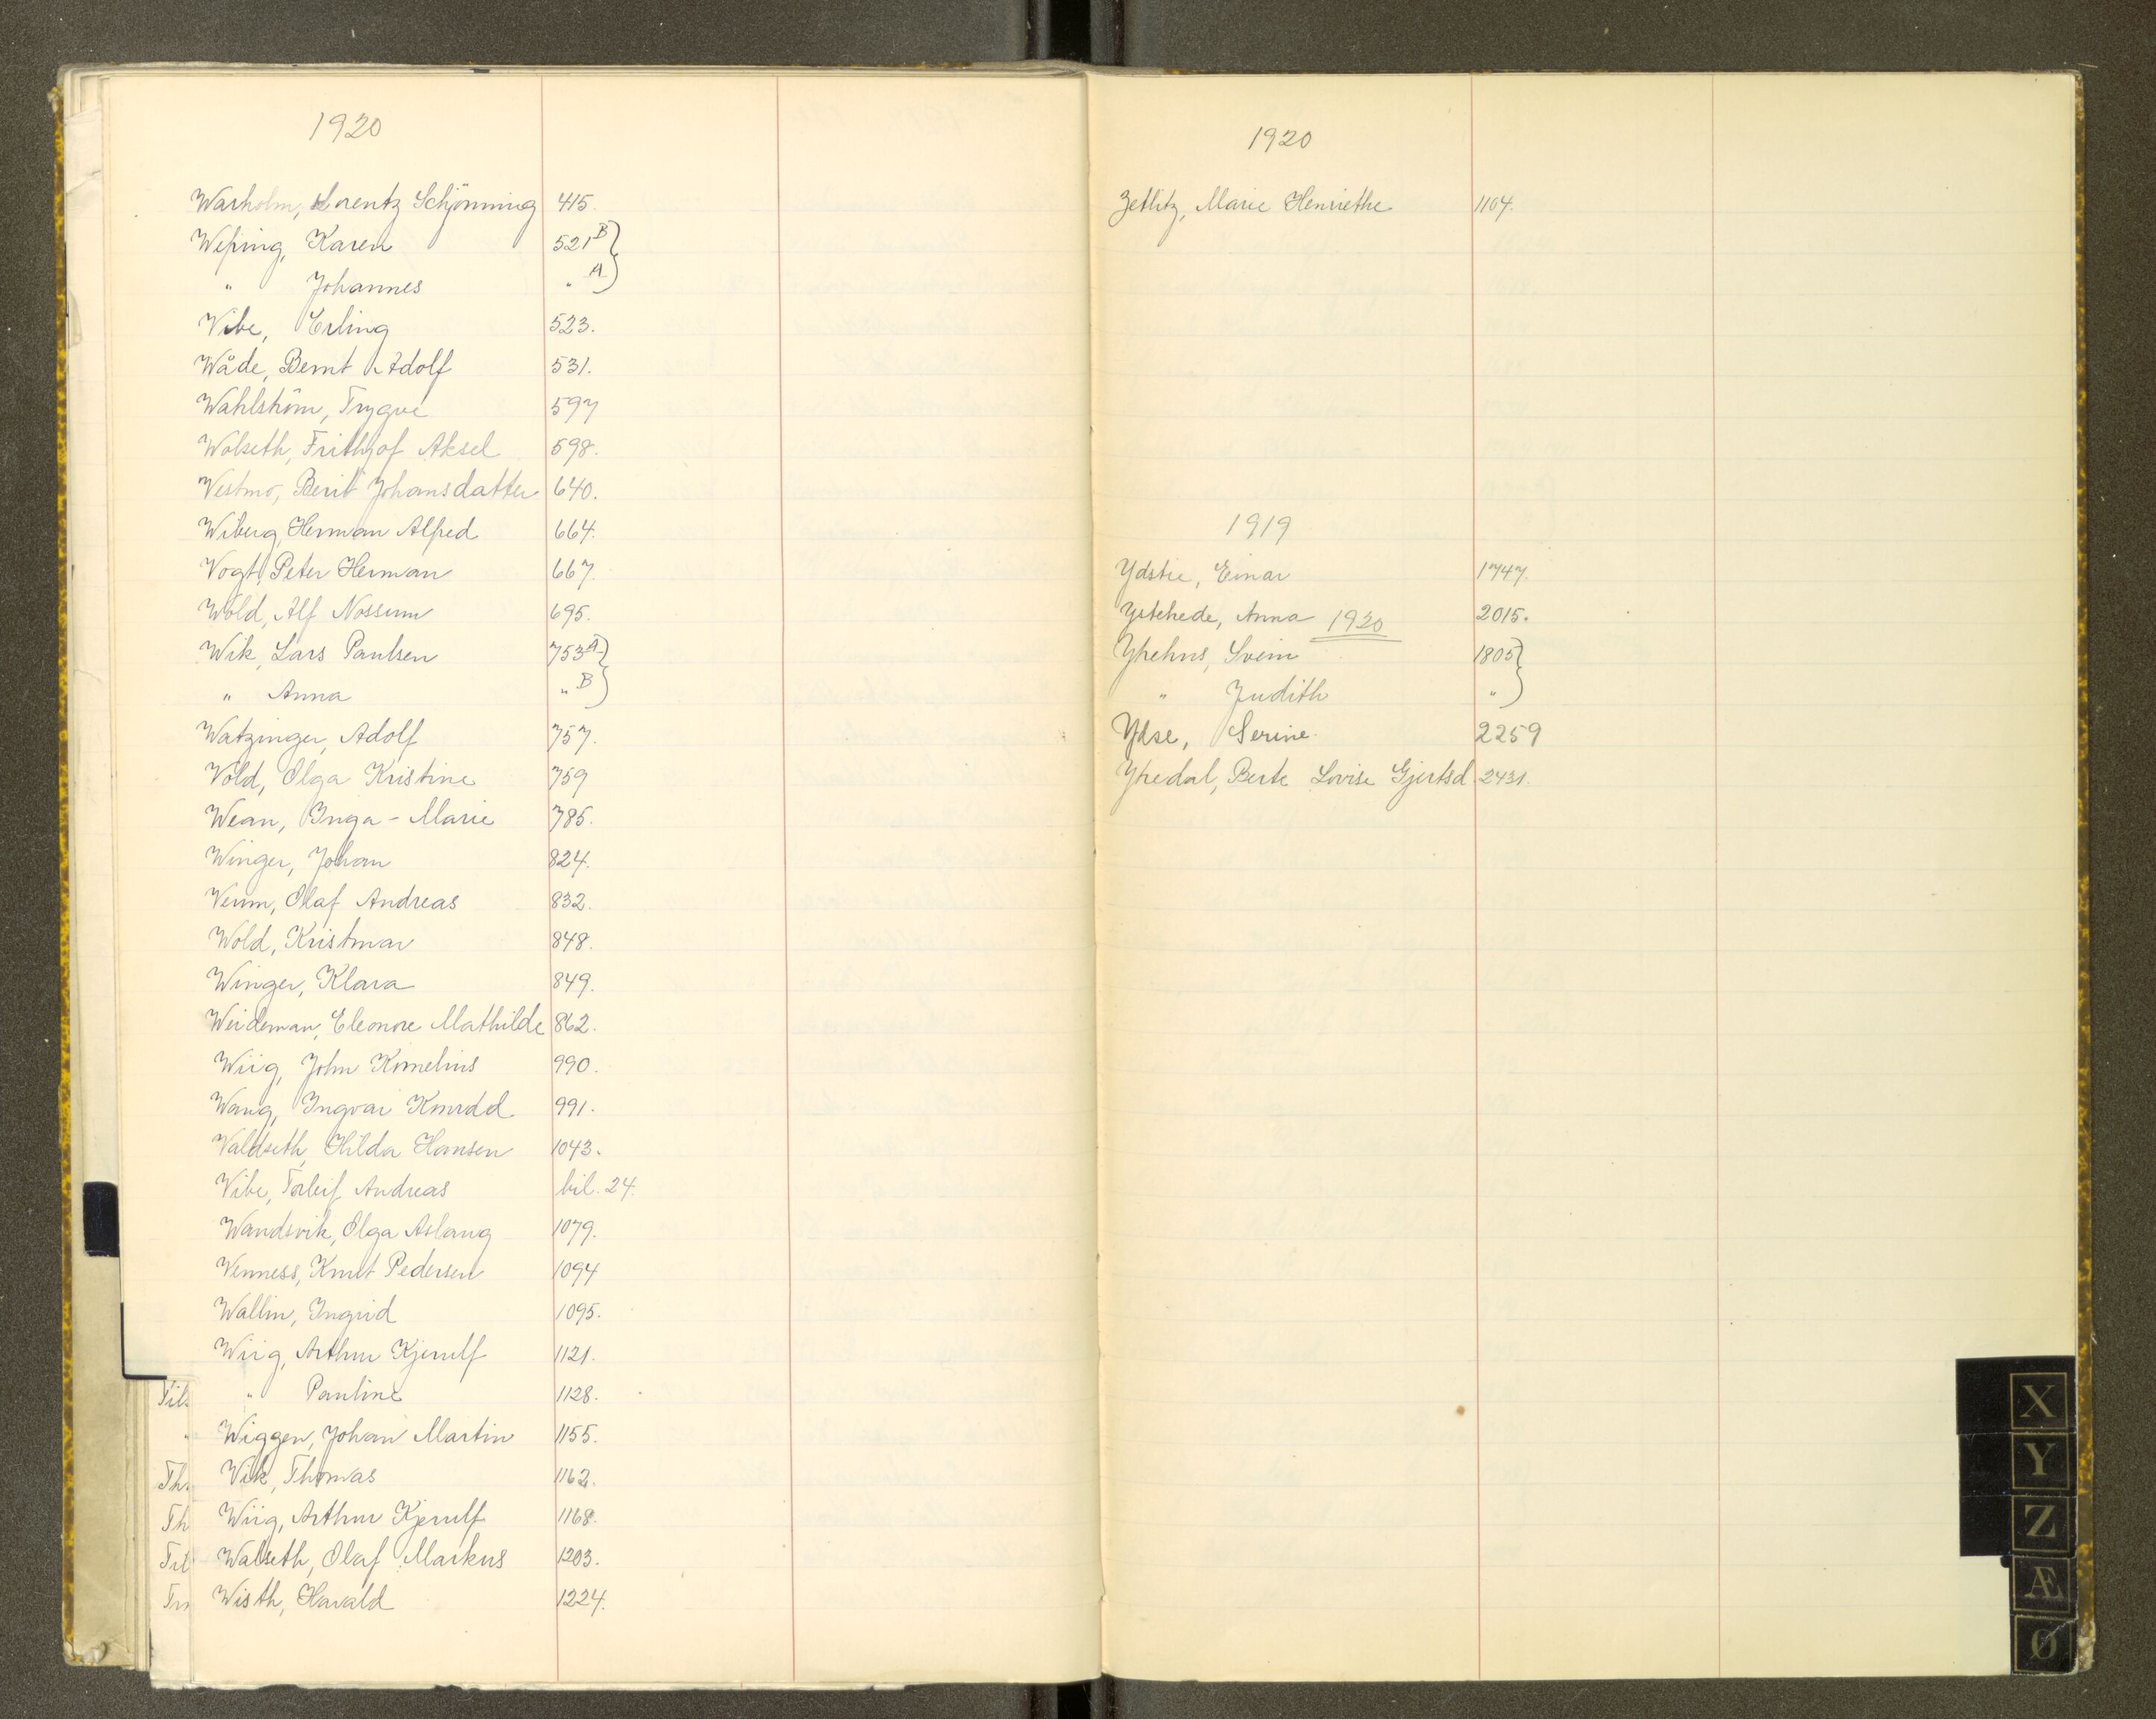 1920
Warholm, Lorentz Schjönning 415.
Wessing, Karen 521 B
" Johannes " A
Vibe, Erling 523.
Wåde, Bernt Adolf 531.
Wahlström, Trygve 597
Wolseth, Frithjof Aksel 598.
Vestmo, Berit Johansdatter 640.
Wiberg, Herman Alfred 664.
Vogt, Peter Herman 667.
Wold, Alf Nossum 695.
Wik, Lars Paulsen 753 A
" Anna " B
Watzinger, Adolf 757.
Vold, Olga Kristine 759
Wean, Inga-Marie 785.
Winger, Johan 824.
Venm, Olaf Andreas 832.
Wold, Kristmar 848.
Winger, Klara 849.
Weideman, Eleonore Mathilde 862.
Wiig, John Kornelius 990.
Wang, Ingvar Konrad 991.
Valdseth, Hilda Hansen 1043.
Vibe, Torleif Andreas bil. 24.
Wandsvik, Olga Aslaug 1079.
Venness, Knut Pedersen 1094
Wallin, Ingrid 1095.
Wiig, Arthur Kjerulf 1121.
Tils
" Pauline 1128.
"
Wiggen, Johan Martin 1155.
Th
Vik, Thomas 1162.
Th
Wiig, Arthur Kjerulf 1168.
Til
Walseth, Olaf Markus 1203.
Wisth, Harald 1224.
1920
Zetlitz, Marie Henriethe 1104.
1919
Ydstie, Einar 1747.
Ystehede, Anna 1920 2015.
Ytrehus, Svein 1805
" Judith "
Ydse, Serine 2259
Ytredal, Berte Lovise Gjertsd. 2431.
X
Y
Z
Æ
Ø